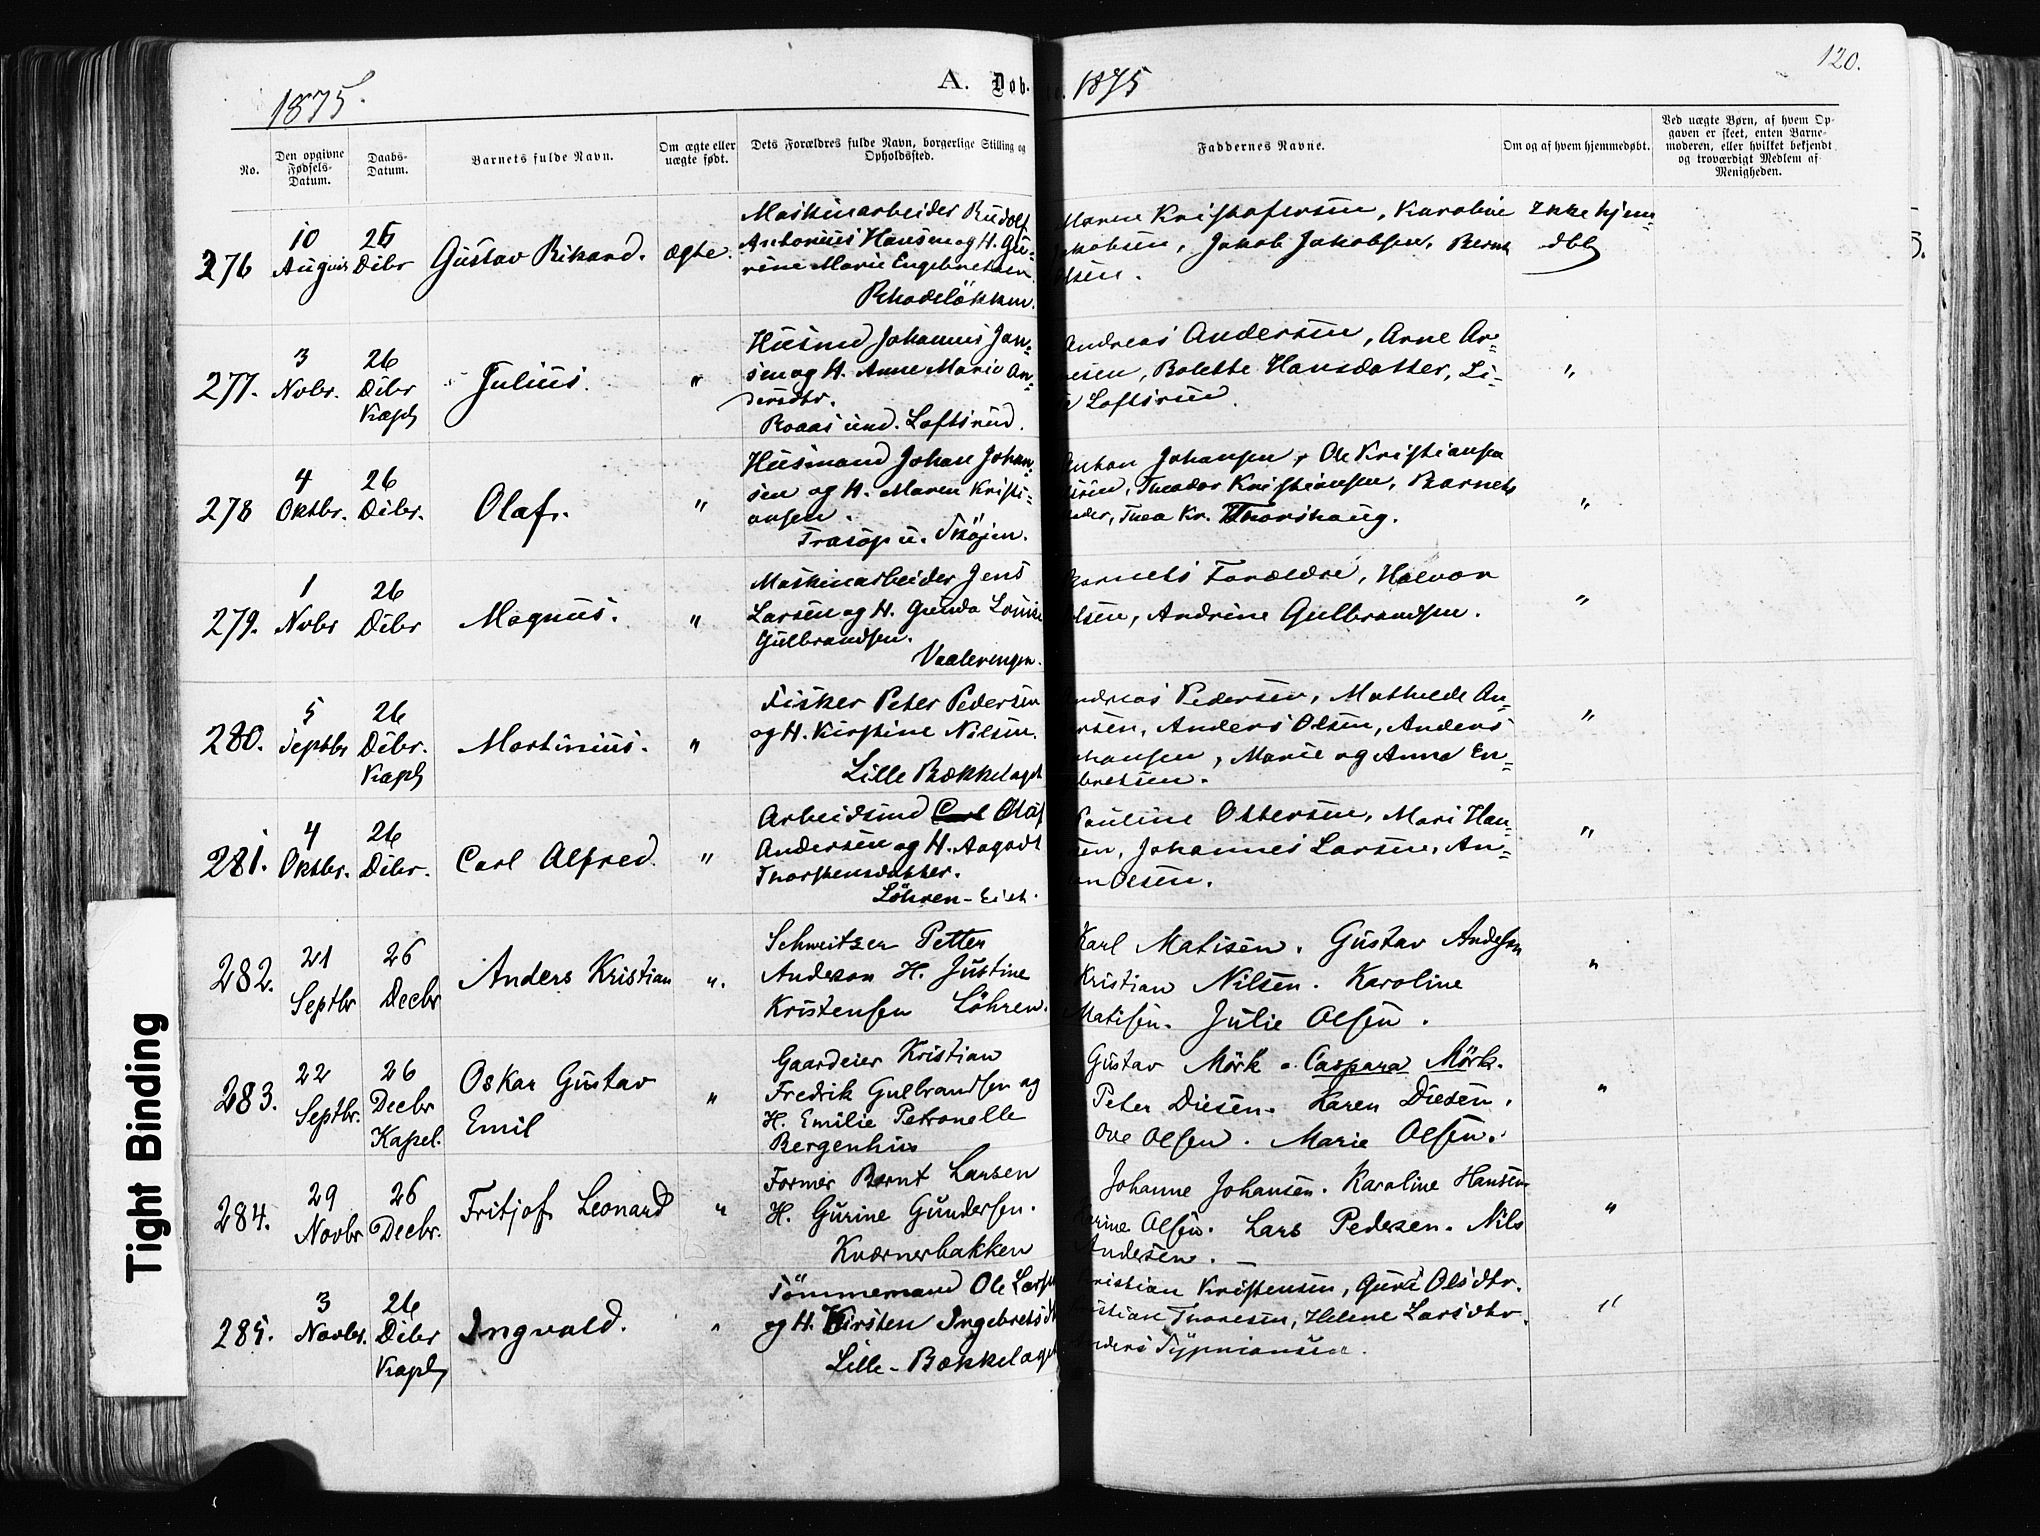 1875.
A. Døb.
1875
120.
No.
Den opgivne Fødsels-Datum.
Daabs-Datum.
Barnets fulde Navn.
Om ægte eller uægte født.
Dets Forældres fulde Navn, borgerlige Stilling og Opholdssted.
Faddernes Navne.
Om og af hvem hjemmedøbt.
Ved uægte Børn, af hvem Op-
gaven er skeet, enten Barne-
moderen, eller hvilket bekjendt
og troværdigt Medlem af
Menigheden.
276
10 August
26 Dcbr
Gustav Rikard.
ægte.
Maskinarbeider Rudolf
Antonius Hansen og H. Gu-
rine Marie Engebretsen
Rhodeløkken.
Maren Kristofersen, Karoline
Jakobsen, Jakob Jakobsen, Bernt
Olsen.
Ikke hjem
dbt
277.
3 Novbr.
26 Dcbr Kapl
Julius.
"
Husmd Johannes Jan-
sen og H. Anne Marie An-
dersdtr.
Roaas und. Loftsrud.
Andreas Andersen, Arne Ar-
nesen, Bolette Hansdatter, Li-
Loftsrud.
"
278
4 Oktbr.
26 Dcbr.
Olaf.
"
Husmand Johan Johan-
sen og H. Maren Kristi-
ansen.
Trasop u. Skøjen.
Anton Johansen, Ole Kristiansen
Theodor Kristiansen, Barnets
Thea Kr. Thorshaug.
"
279.
1 Novbr
26 Dcbr
Magnus.
"
Maskinarbeider Jens
Larsen og H. Gunda Louise
Gulbrandsen.
Vaalerengen.
Barnets Forældre, Halvor
Olsen, Andrine Gulbrandsen.
"
280.
5 Septbr
26 Dcbr. Kapl
Martinius.
"
Fisker Peter Pedersen
og H. Kirstine Nilsen.
Lille Bækkelaget
Andreas Pedersen, Mathilde An-
ersen, Anders Olsen, Anders
Johansen, Marie og Anna En-
gebretsen.
"
281.
4 Oktbr.
26 Dcbr.
Carl Alfred.
"
Arbeidsmd Carl Olaf
Andersen og H. Aagodt
Thorstensdatter.
Løhren - Eiet.
Pauline Ottersen, Mari Han-
sen, Johannes Larsen, An-
Olsen.
"
282.
21 Septbr
26 Decbr
Anders Kristian
".
Schweitzer Petter
Anderson H. Justine
Kristensen Løhren.
Karl Matisen. Gustav Andersen
Kristian Nilsen. Karoline
Matisen. Julie Olsen.
"
283.
22 Septbr.
26 Decbr Kapel.
Oskar Gustav
Emil
"
Gaardeier Kristian
Fredrik Gulbrandsen og
H. Emilie Petronelle
Bergenhus
Gustav Mørk - Caspara Mørk.
Peter Diesen. Karen Diesen.
Ove Olsen. Marie Olsen.
"
284.
29 Novbr
26 Decbr.
Fritjof Leonard
"
Former Bernt Larsen
H. Gurine Gundersen.
Kværnerbakken
Johanne Johansen. Karoline Hansen
Olsen. Lars Pedersen. Nils
Andersen.
"
285.
3 Novbr.
26 Dcbr Kapl
Ingvald.
"
Tømmermand Ole Larsen
og H. Kirsten Ingebretsdt
Lille-Bækkelaget
Kristian Kristensen, Guri Olsdtr.
Kristian Thoresen, Helene Larsdtr.
Anders
"
Tight Binding